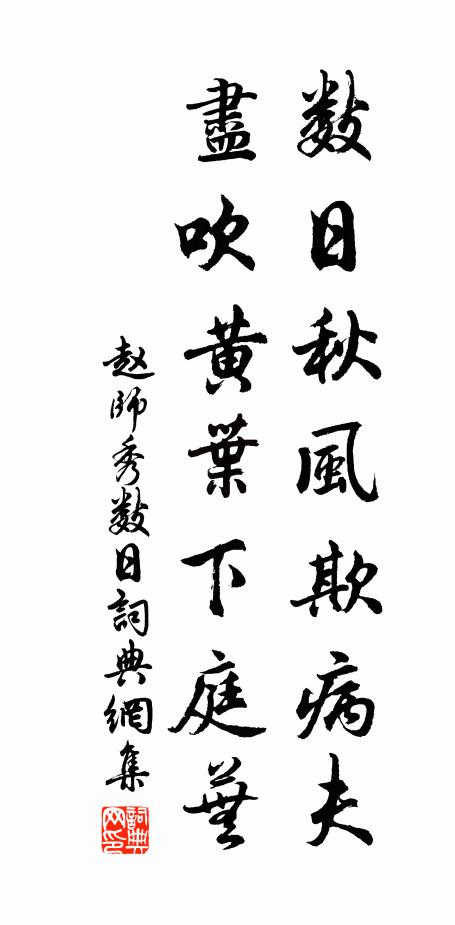 數日秋風欺病夫
盡吹黃葉下庭蕪
赵師秀數日詞典網集
詞典网印